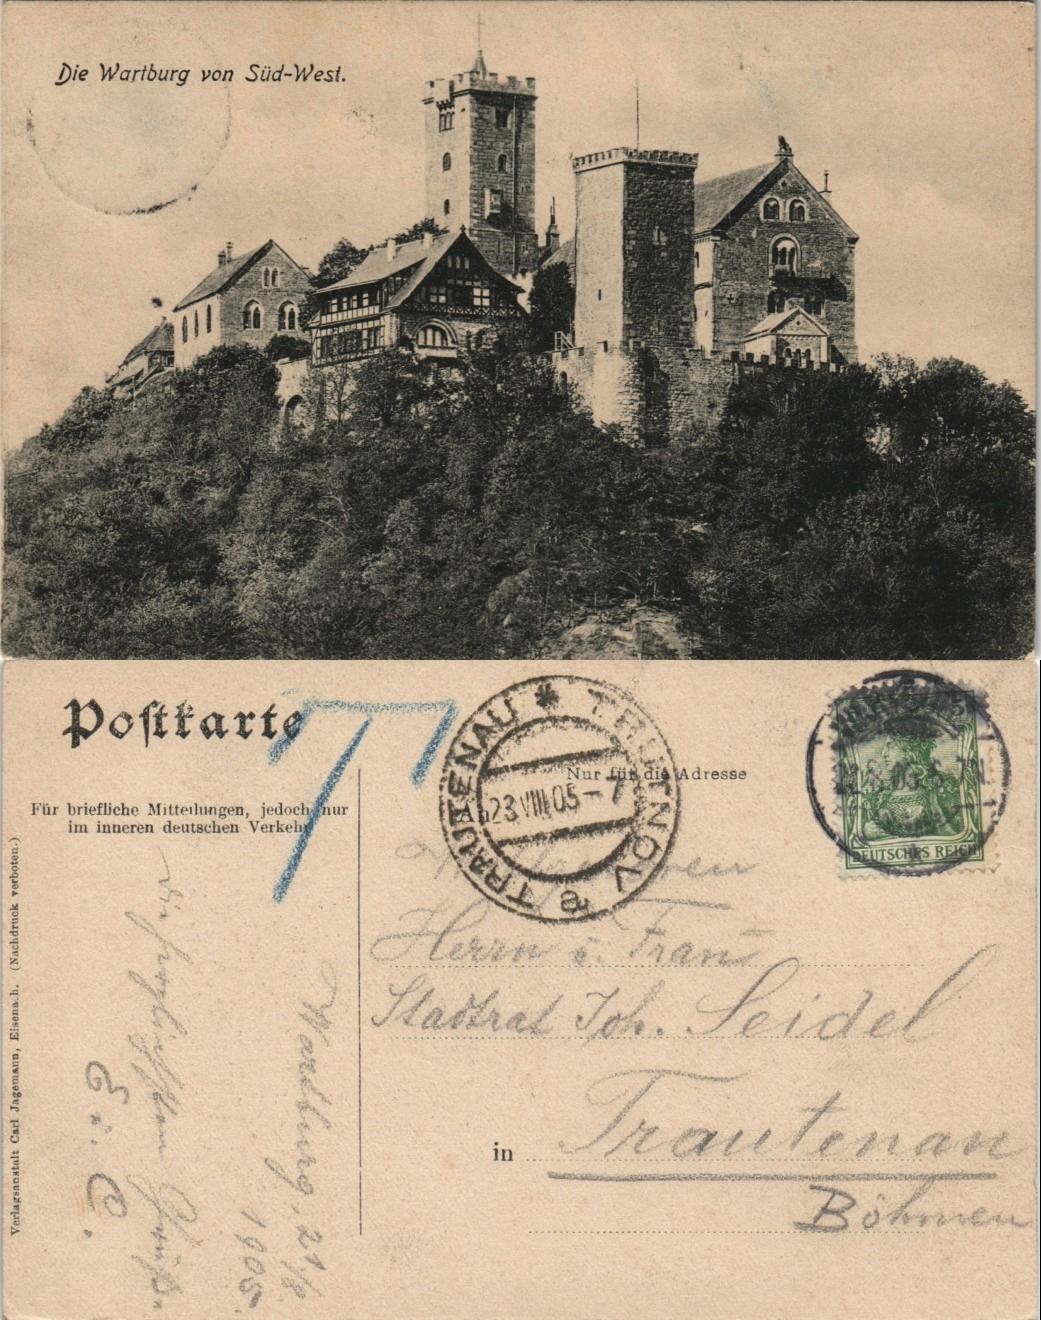 Die Wartburg von Süd-West.
Postkarte
Nur für die Adresse
Für briefliche Mitteilungen, jedoch nur
im inneren deutschen Verkehr
An
TRAUTENAU * TRUTNOV
23 VIII 05-7
DEUTSCHES REICH
Herrn u. Frau
Stadtrat Joh. Seidel
in Trautenau
Böhmen
Wartburg, 21/8
1905.
Die herzlichsten Grüße
E. u. C.
Verlagsanstalt Carl Jagemann, Eisenach. (Nachdruck verboten.)